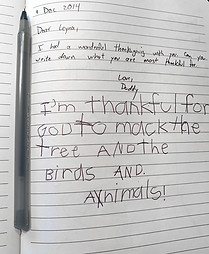 1 Dec 2014
Dear Leyna,
I had a wonderful thanksgiving with you. Can you
write down what you are most thankful for.
Love,
Daddy
I'm thankful for
GOD TO mack the
tree AND the
Birds AND.
AXnimals!